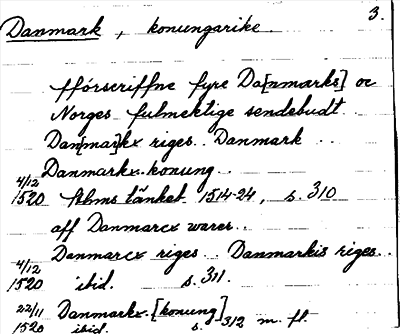 3.
Danmark, konungarike.
fförscriffne fyre Da[nmarks] oc
Norges fulmektige sendebudt.
Dan[mar]kx riges.. Danmark ..
Danmarkx. konung..
4/12 1520 Sthms tänkeb. 1514-24, s. 310
aff Danmarcx warer..
Danmarcx riges.. Danmarkis riges..
4/12 1520 ibid. s. 311.
22/11 Danmarkx. [konung]
1520 ibid. s. 312 m. fl.